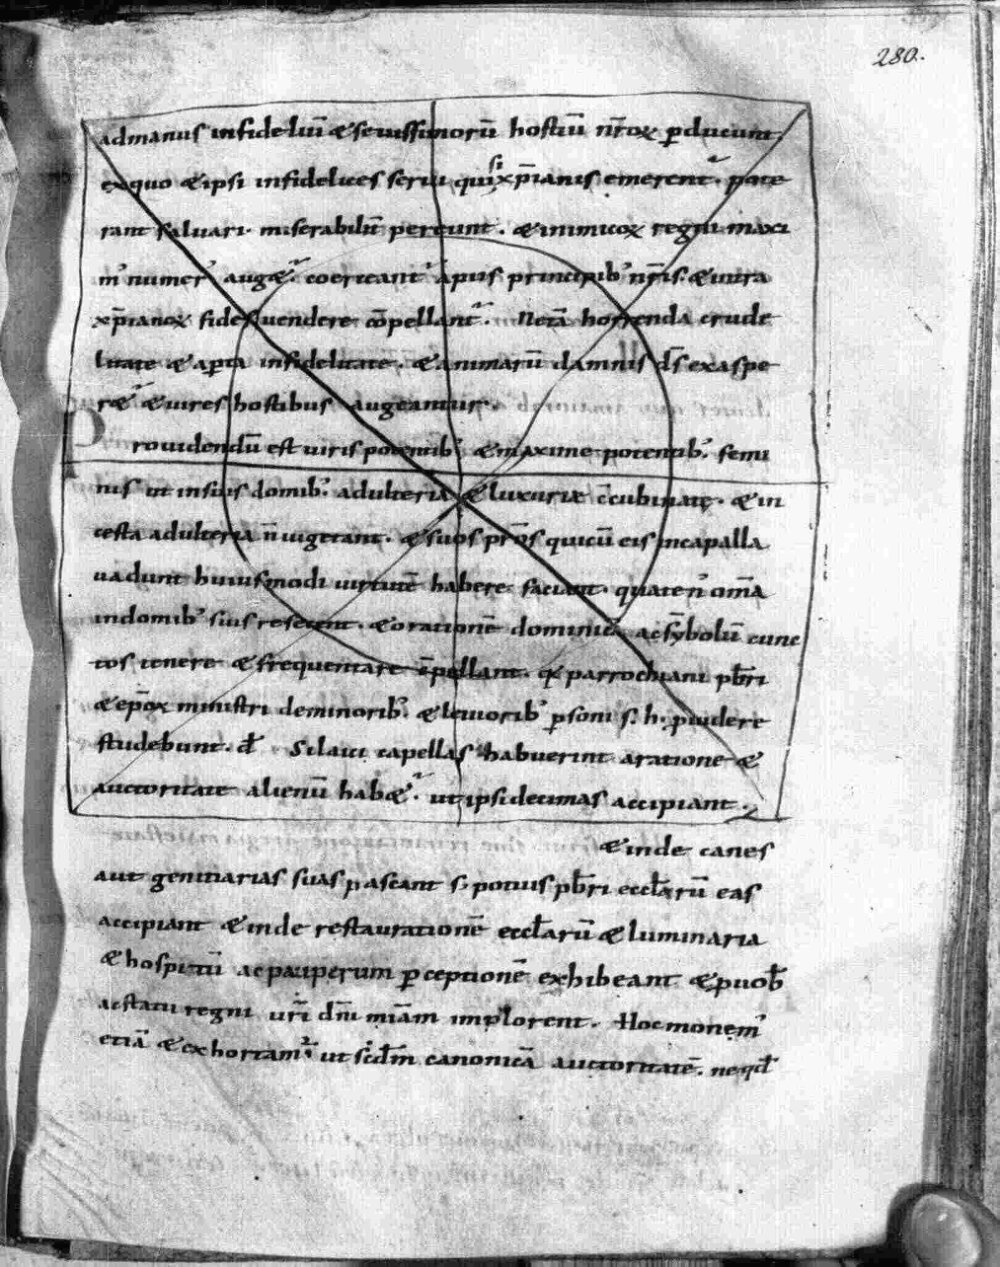 280.
admanus infideliū & seuissimorū hostiū nr̄oꝝ ꝑducunt
exquo & ipsi infideles serui qui si xp̄ianis emerent᷑. pote
rant saluari. miserabilit̄ pereunt. & inimicoꝝ regni maxi
m᷒ numer᷒ auget᷑. coerceant᷒ apiis principib᷒ nr̄is. & intra
xp̄ianoꝝ fides uendere cōpellant᷑. Ne tā horrenda crude
litate & aꝑta infidelitate. & animarū damnis dꞩ̄ exaspe
ret᷑ & uires hostibus augeantur.
Prouidendū est uiris potentib᷒ & maxime potentib᷒. femi
nis ut insuis domib᷒. adulteria & luxuriae c̄cubinatę. & in
cesta adulteria n̄ uigeant. & suos pr̄os quicū eis incapalla
uadunt huiusmodi uirtutē habere faciant. quaten᷒ om̄a
indomib᷒ suis resecent. & orationē dominicā ac sȳbolū cunc
tos tenere & frequentare c̄pellant. qꝫ parrochiani pb̄ri
& ep̄oꝝ ministri deminorib᷒. & leuiorib᷒ ꝑsonis. h. puidere
studebunt. đ. Si laici capellas habuerint aratione &
auctoritate alienū habet᷑. ut ipsi decimas accipiant.
& inde canes
aut genitiarias suas pascant s. potius pb̄ri eccl̄arū eas
accipiant & inde restaurationē eccl̄arū & luminaria
& hospitū ac pauperum ꝑceptionē exhibeant & ꝓ uob̄
ac statu regni ur̄i dn̄i mīam implorent. Hoc monem᷒
etiā & exhortam᷒ ut scd̄m canonicā auctoritatē. neqđ